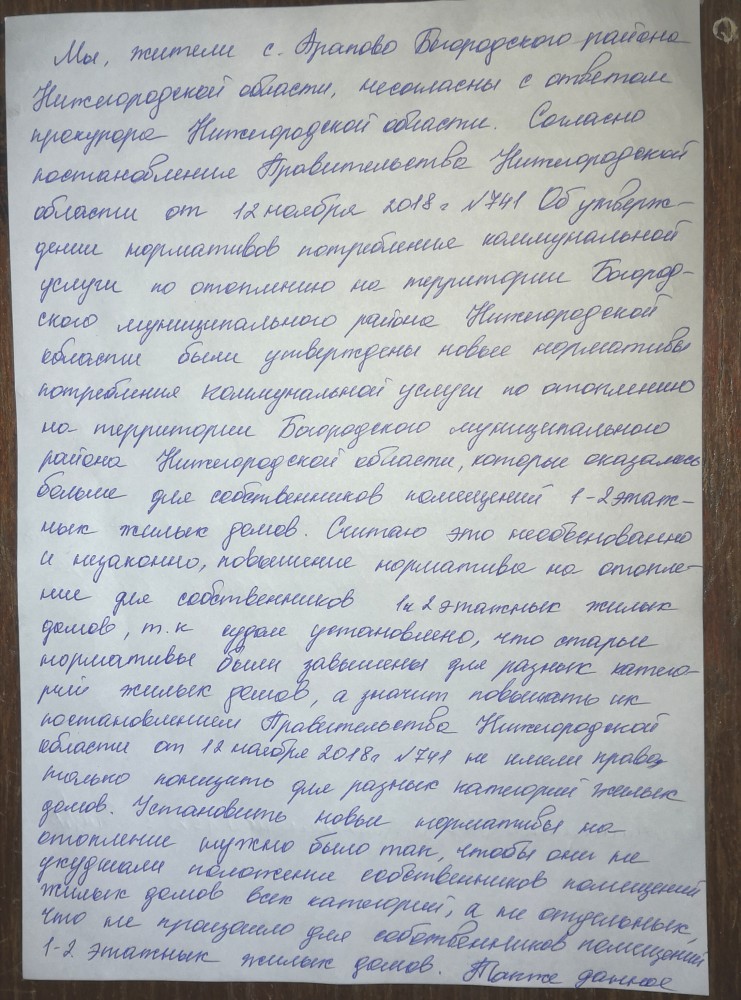 Мы, жители с. Арапово Богородского района
Нижегородской области, несогласны с ответом
прокурора Нижегородской области. Согласно
постановления Правительства Нижегородской
области от 12 ноября 2018 г №741 Об утверж-
дении нормативов потребления коммунальной
услуги по отоплению на территории Богород-
ского муниципального района Нижегородской
области были утверждены новые нормативы
потребления коммунальной услуги по отоплению
на территории Богородского муниципального
района Нижегородской области, которые оказались
больше для собственников помещений 1-2 этаж-
ных жилых домов. Считаю это необоснованно
и незаконно, повышение норматива на отопле-
ние для собственников 1и 2 этажных жилых
домов, т.к судом установлено, что старые
нормативы были завышены для разных катего-
рий жилых домов, а значит повышать их
постановлением Правительства Нижегородской
области от 12 ноября 2018г №741 не имели права
только понизить для разных категорий жилых
домов. Установить новые нормативы на
отопление нужно было так, чтобы они не
ухудшали положение собственников помещений
жилых домов всех категорий, а не отдельных,
что не произошло для собственников помещений
1-2 этажных жилых домов. Также данное